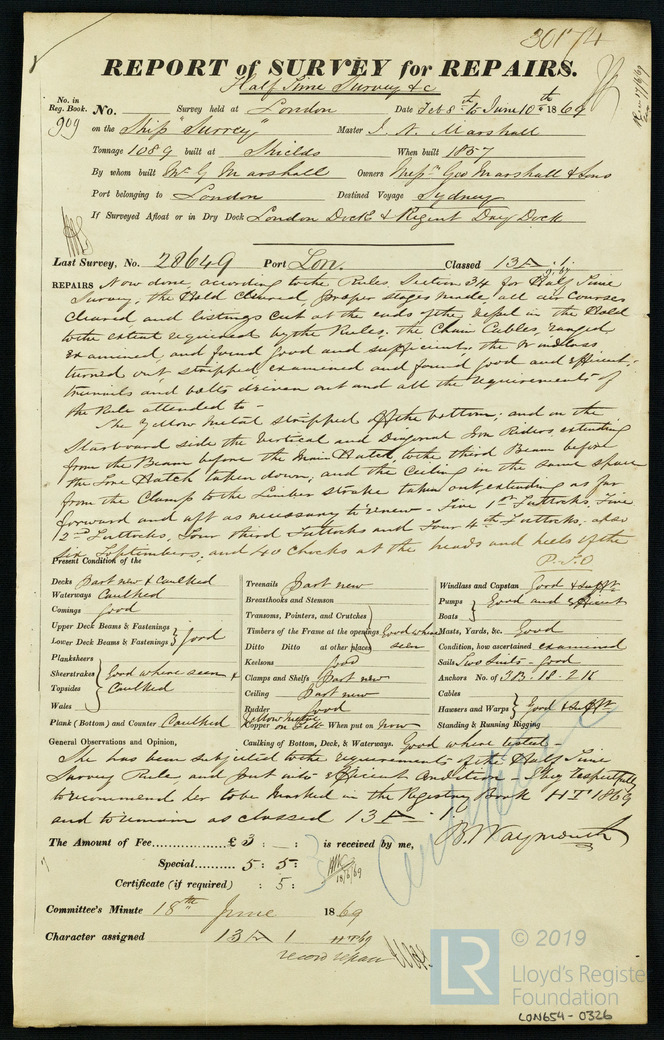 30174
REPORT of SURVEY for REPAIRS.
Half Time Survey &c
No. in Reg. Book. No. Survey held at London Date Feb 8th to June 10th 1869
909 on the Ship "Surrey" Master J. N. Marshall
Tonnage 1089 built at Shields When built 1857
By whom built Mr G Marshall Owners Messrs Geo Marshall & Sons
Port belonging to London Destined Voyage Sydney
If Surveyed Afloat or in Dry Dock London Dock & Regent Dry Dock
Last Survey, No. 28649 Port Lon. Classed 13 A 1.
REPAIRS Now done, according to the Rules, Section 34 for Half Time
Survey, the Hold cleared, proper stages made, all air courses
cleared and listings cut at the ends of the vessel in the Hold
to the extent required by the Rules. the Chain Cables, ranged
examined, and found good and sufficient. the windlass
turned out stripped, examined and found good and efficient,
trunnils and bolts driven out and all the requirements of
the Rule attended to -
The Yellow Metal stripped off the bottom; and on the
Starboard side the Vertical and Diagonal Iron Riders extending
from the Beam before the Main Hatch, to the third Beam before
the Fore Hatch taken down; and the Ceiling in the same space
from the Clamp to the Limber strake taken out extending as far
forward and aft as necessary to renew - Five 1st Futtocks, Five
2nd Futtocks, Four third Futtocks and Four 4th Futtocks; also
six Toptimbers; and 40 chocks at the heads and heels of the
P.T.O
Present Condition of the
Decks Part new & Caulked
Waterways Caulked
Comings Good
Upper Deck Beams & Fastenings
Lower Deck Beams & Fastenings } Good
Planksheers
Sheerstrakes
Topsides
Wales } Good where seen & Caulked
Plank (Bottom) and Counter Caulked
Treenails Part new
Breasthooks and Stemson
Transoms, Pointers, and Crutches
Timbers of the Frame at the openings
Ditto Ditto at other places } Good where seen
Keelsons Good
Clamps and Shelfs Part new
Ceiling Part new
Rudder Good
Yellow metal
Copper on Felt When put on Now
Windlass and Capstan Good & sufft
Pumps
Boats } Good and efficient
Masts, Yards, &c. Good
Condition, how ascertained examined
Sails Two Suits - Good
Anchors No. of 3B. 1S. 2K
Cables
Hawsers and Warps } Good & sufft
Standing & Running Rigging
General Observations and Opinion, Caulking of Bottom, Deck, & Waterways. Good where tested -
She has been subjected to the requirements of the Half Time
Survey Rule, and put into efficient condition - I beg respectfully
to recommend her to be marked in the Registry Book HT 1869
and to remain as classed 13 A 1.
The Amount of Fee £ 3 : - : is received by me, B. Waymouth
Special 5 : 5 :
18/6/69
Certificate (if required) : 5 :
Committee's Minute 18th June 1869
Character assigned 13 A 1 HT 69
© 2019
LR Lloyd's Register
Foundation
LON654-0326